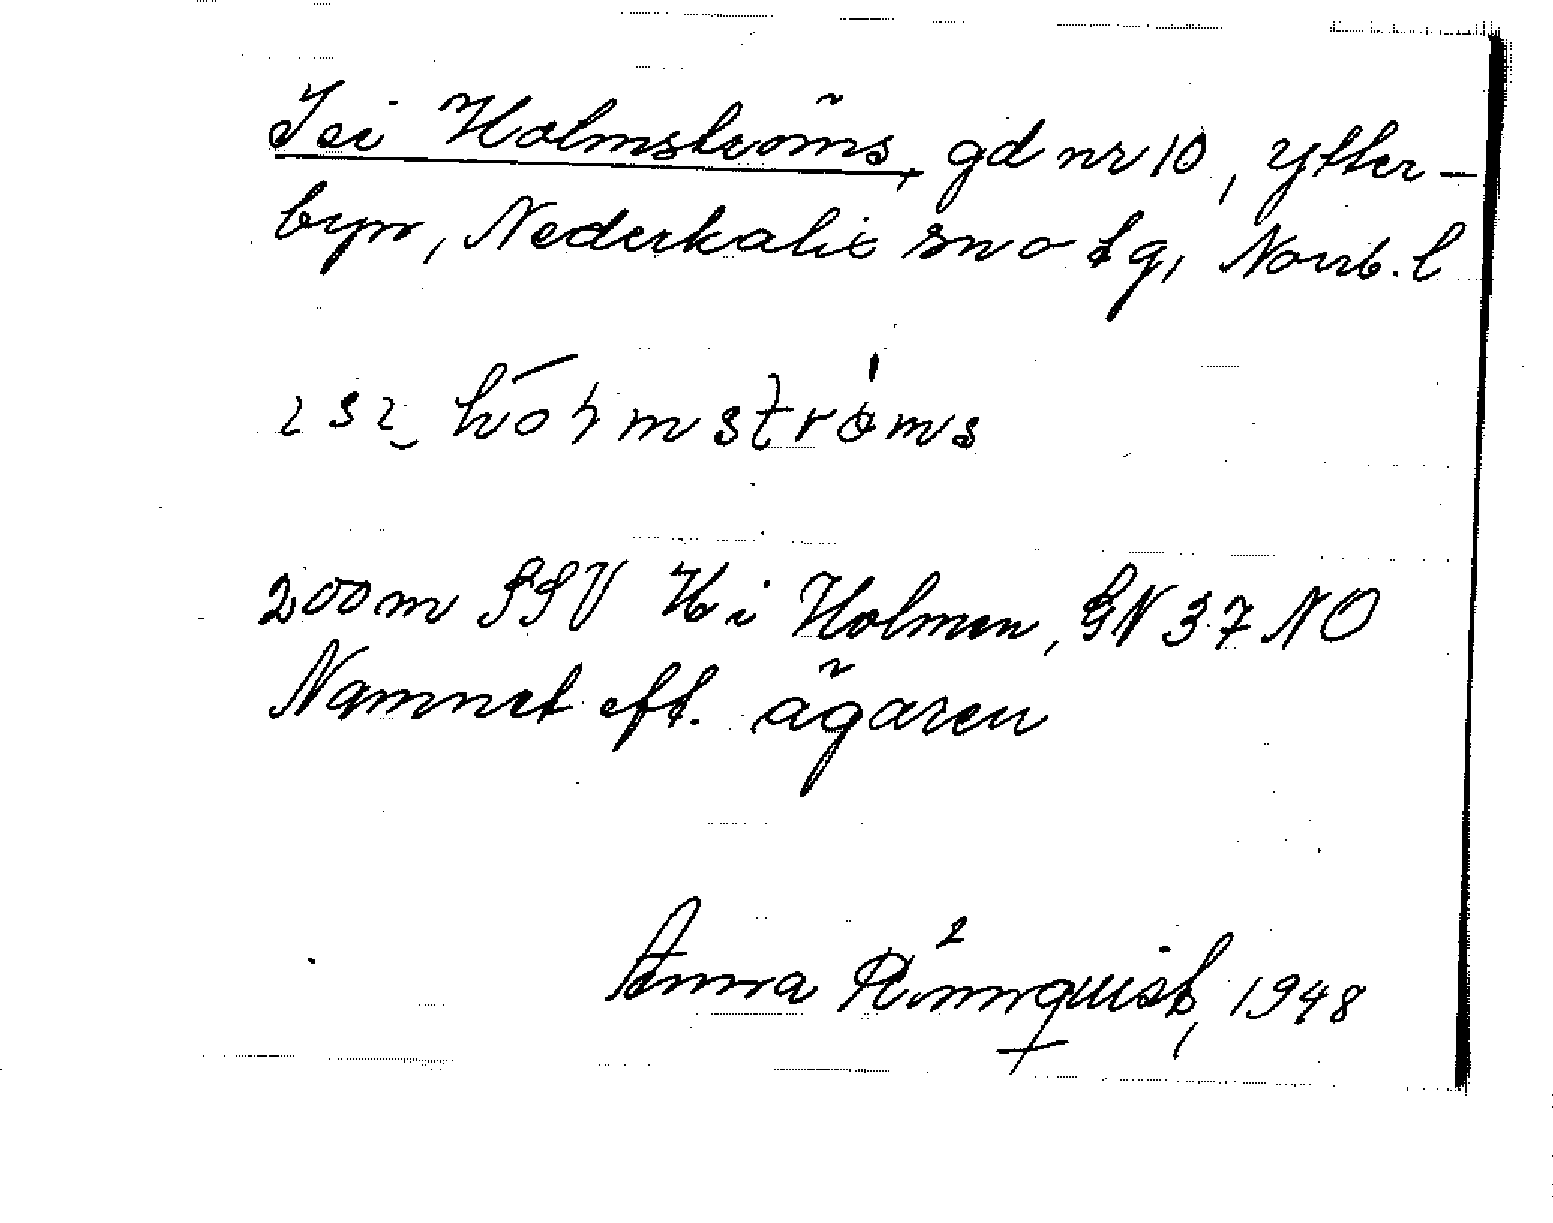 Jei Holmströms, gd nr 10, Ytter-
byn, Nederkalix sn o tg, Norrb. l
hō m strö̀ms
200m SSV H i Holmen, GN 37 NO
Namnet eft. ägaren
Anna Rönnquist, 1948